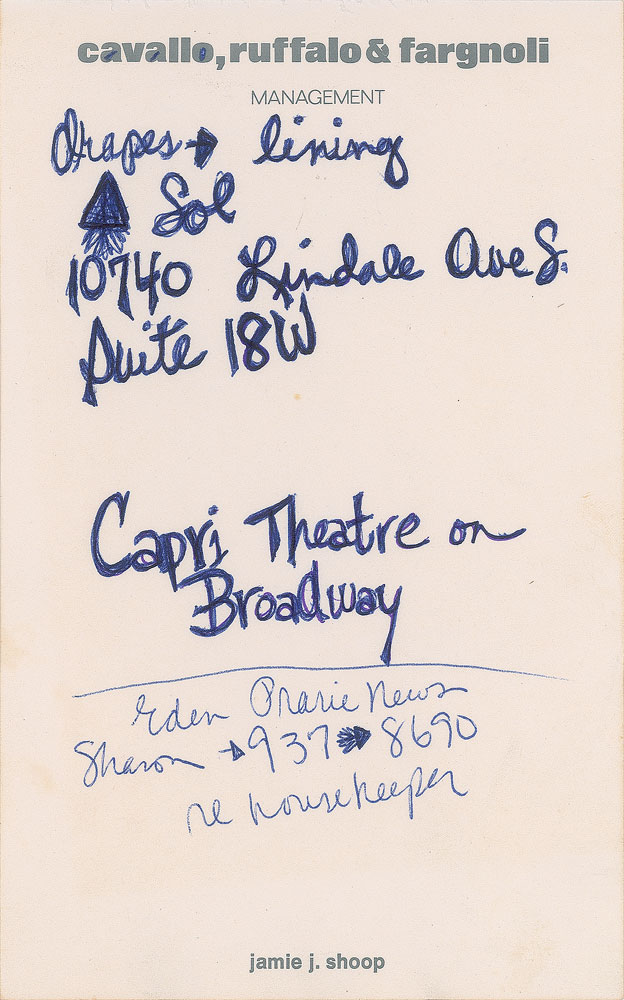 cavallo, ruffalo & fargnoli
MANAGEMENT
drapes → lining
Sol
10740 Lindale Ave S.
Suite 18W
Capri Theatre on
Broadway
Eden Prarie News
Sharon → 937 → 8690
re housekeeper
jamie j. shoop